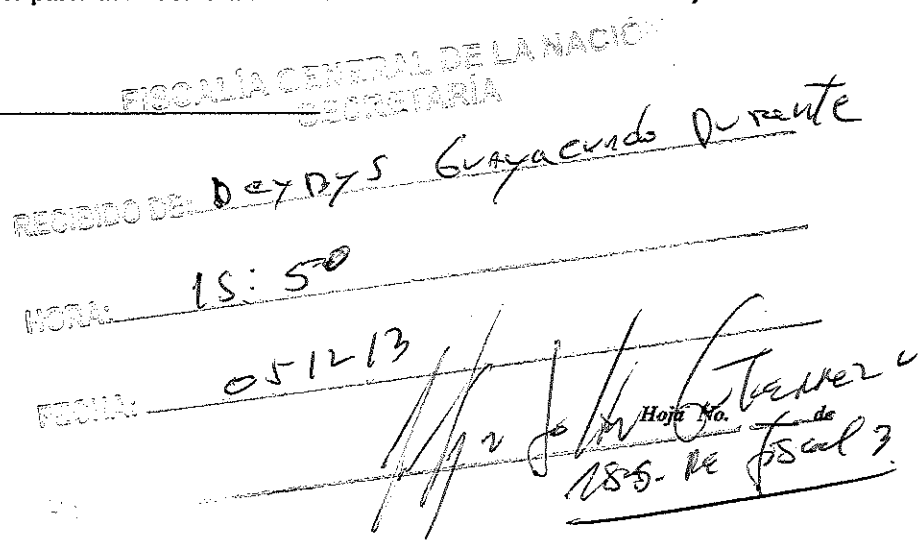 FISCALÍA GENERAL DE LA NACIÓN
SECRETARÍA
RECIBIDO DE: Deybys Guayacundo Durante
HORA: 15:50
FECHA: 051213
Hoja No. de
Fiscal 3